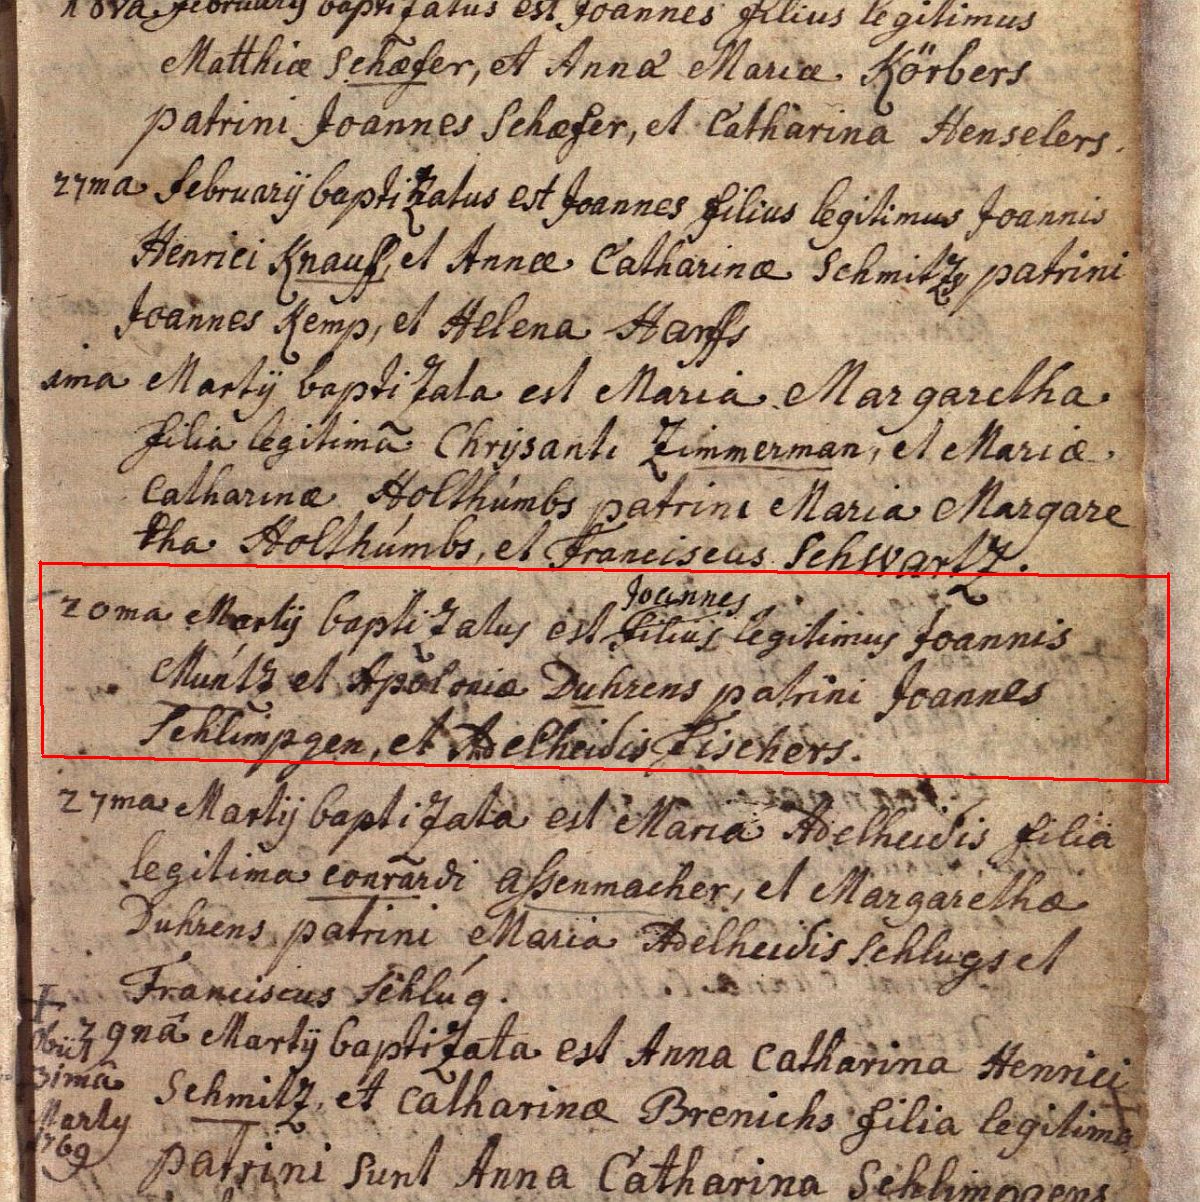 nova februarÿ baptizatus est Joannes filius legitimus
Matthiæ Schæfer, et Anna Mariæ Körbers
patrini Joannes Schæfer, et Catharina Henselers.
27ma februarÿ baptizatus est Joannes filius legitimus Joannis
Henrici Knauff, et Annæ Catharinæ Schmitz patrini
Joannes Kemp, et Helena Harffs
1ma Martÿ baptizata est Maria Margaretha
filia legitima Chrÿsanti Zimmerman, et Mariæ
Catharinæ Holthúmbs patrini Maria Margare
tha Holthúmbs, et Franciscus Schwartz.
Joannes
20ma Martÿ baptizatus est filius legitimus Joannis
Múntz et Apoloniæ Duhrens patrini Joannes
Schlimpgen, et Adelheidis Fischers.
27ma Martÿ baptizata est Maria Adelheidis filia
legitima conrardi Assenmacher, et Margarethæ
Duhrens patrini Maria Adelheidis Schlugs et
Franciscus Schlúg.
29na Martÿ baptizata est Anna Catharina Henrici
obiit
31ma
Schmitz, et Catharinæ Brenichs filia legitima
Marty
1769
patrini sunt Anna Catharina Schlimpgens